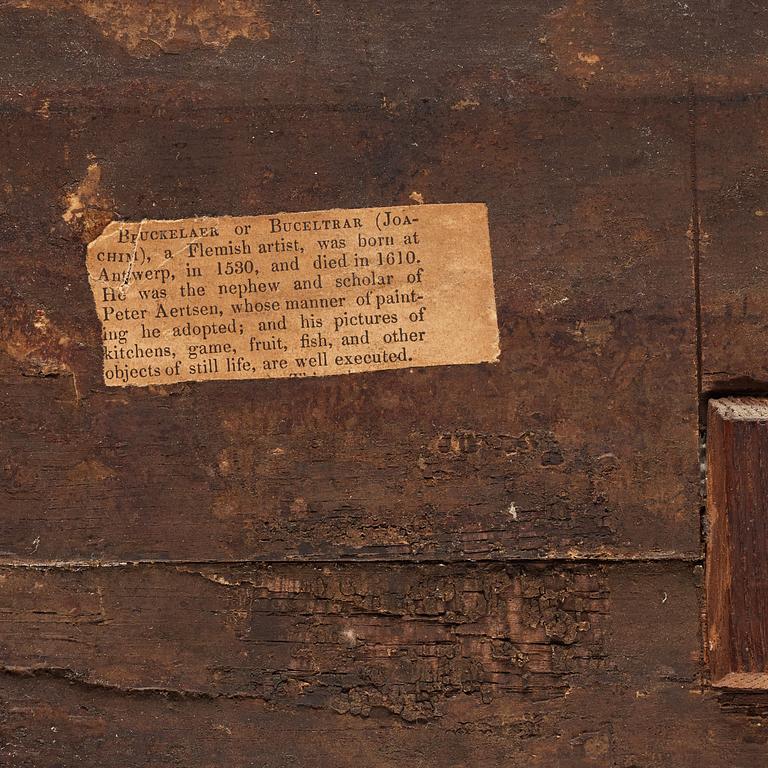 BEUCKELAER or BUCELTRAR (JOA-
CHIM), a Flemish artist, was born at
Antwerp, in 1530, and died in 1610.
He was the nephew and scholar of
Peter Aertsen, whose manner of paint-
ing he adopted; and his pictures of
kitchens, game, fruit, fish, and other
objects of still life, are well executed.